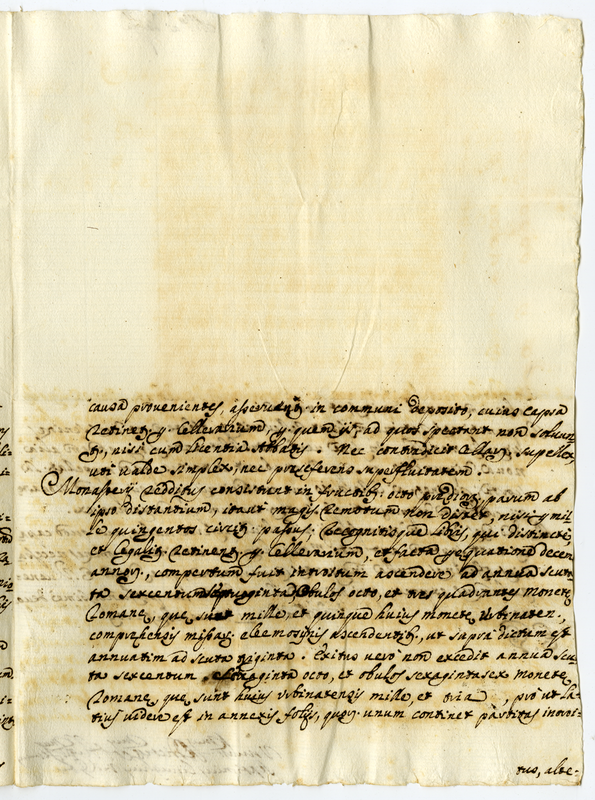 causa provenientes, asservant; in communi deposito, cuius capsa
retinet; p. Cellerarium, p. quem ijs, ad quos spectant non solvun
t;, nisi cum licentia Abbatis. Nec contradicit Cellarij supellex
uti valde simplex, nec preseferens superfluitatem.
Monasterij redditus consistunt in fructib; octo prædior; parum ab
ipso distantium, itaut magis remotum non distet, nisi p mil
le quingentos circit; passus; Recognitisque libris, qui distincte,
et legalit; retinent; p. Cellerarium, et facta perequatione decen
annor;, compertum fuit introitum ascendere ad annua scu
ta sexcentum obulos octo, et tres quadrantes monetę
Romanę, que sunt mille, et quinque huius monetę Urbinaten.,
comprehensis missar; eleemosinis ascendentib;, ut supra dictum est
annuatim ad scuta triginta. Exitus vero non excedit annua scu
ta sexcentum octo, et obulos sexagintasex monetę
Romanę, que sunt huius Urbinatensis mille, et tria, prout la
tius videre est in annexis folijs, quor; unum continet partitas introi=
tus, alte=